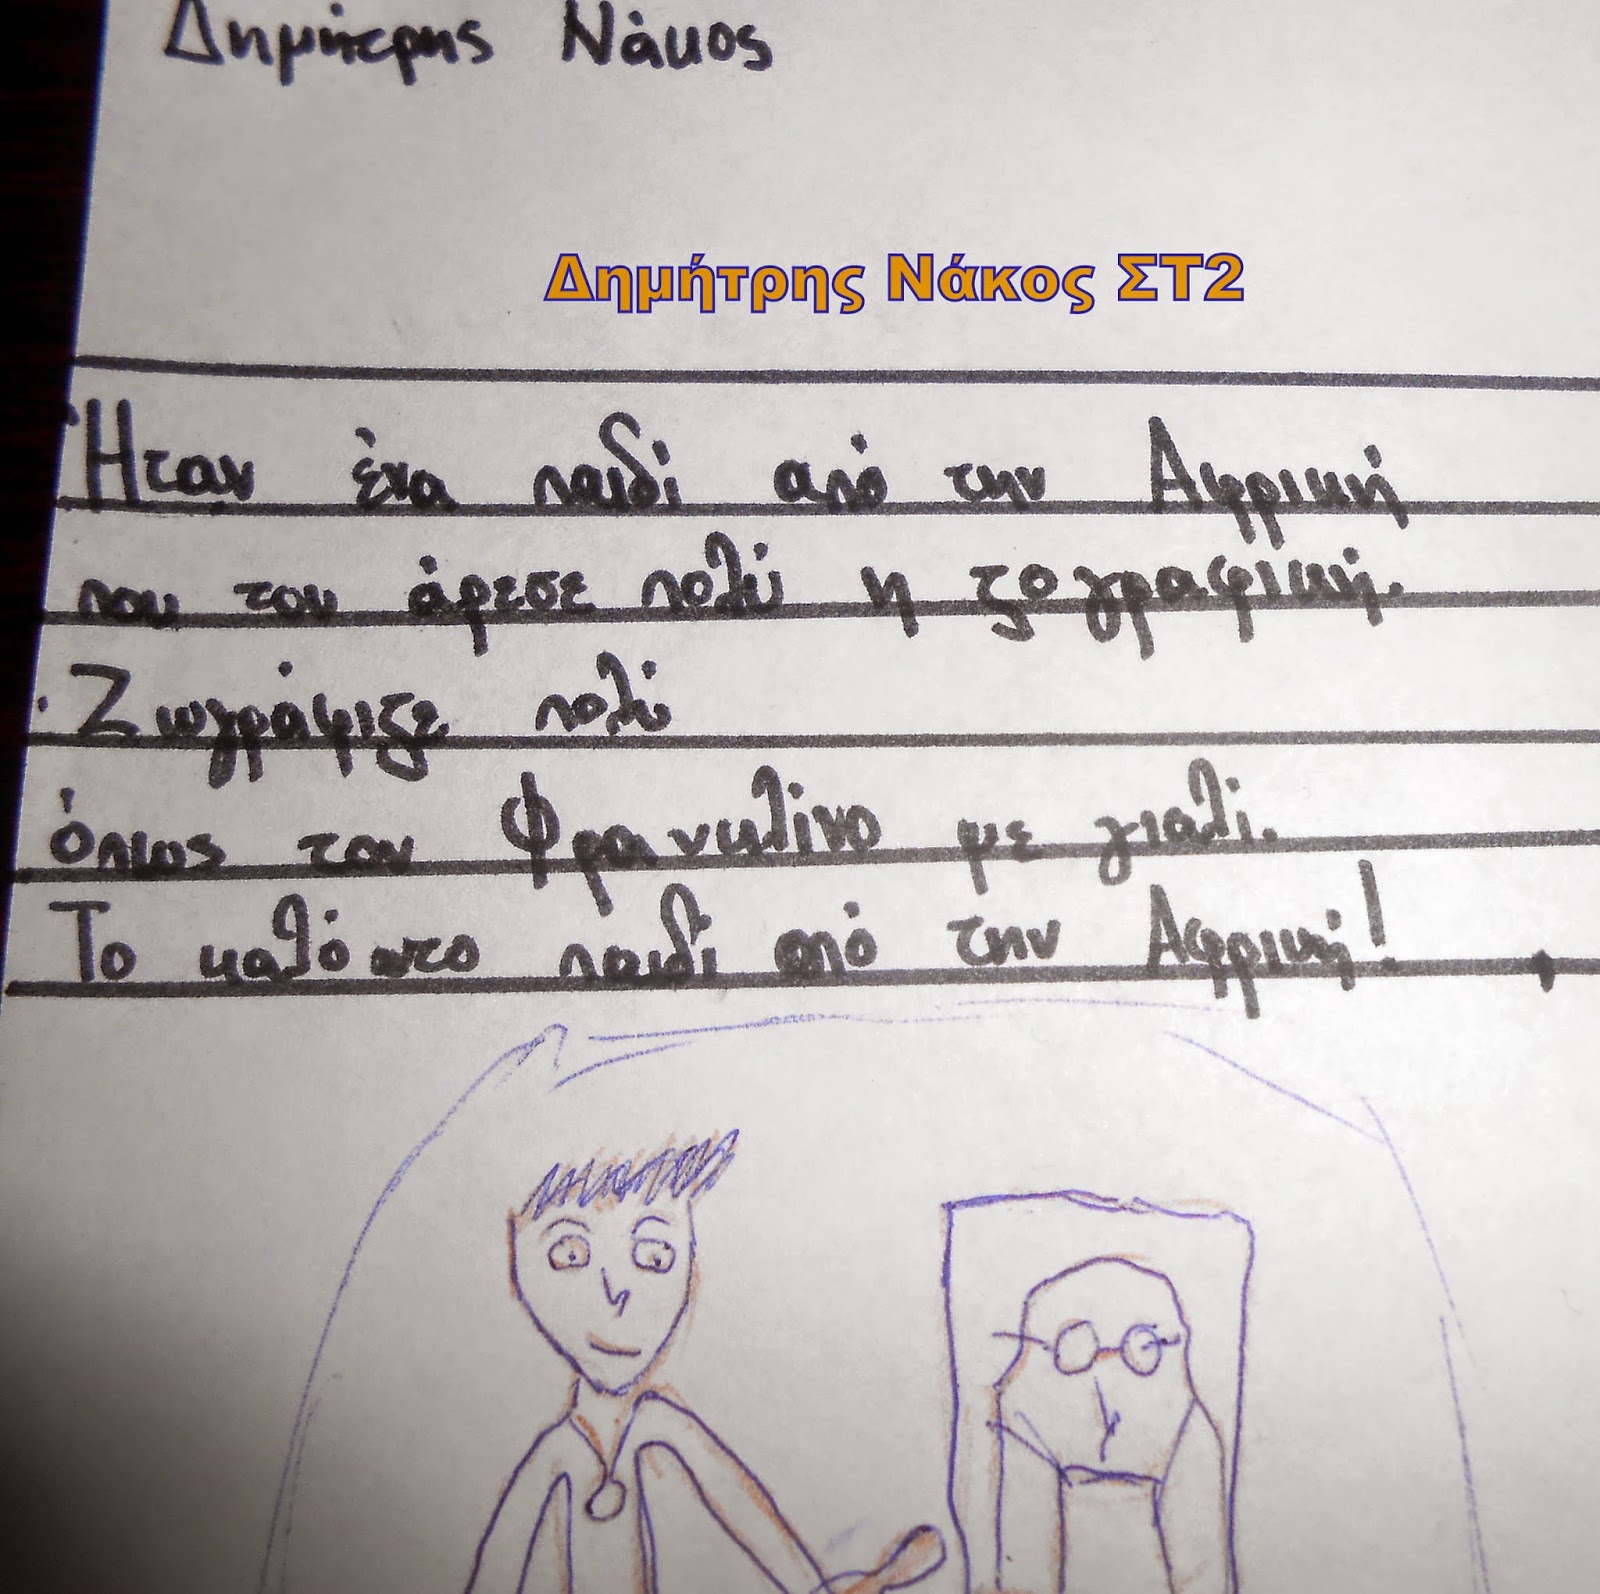 Δημήτρης Νάκος
Δημήτρης Νάκος ΣΤ2
Ήταν ένα παιδί από την Αφρική
που του άρεσε πολύ η ζογραφική.
Ζωγράφιζε πολύ
όπως τον Φρανκλίνο με γιαλί.
Το καλόατο παιδί από την Αφρική!